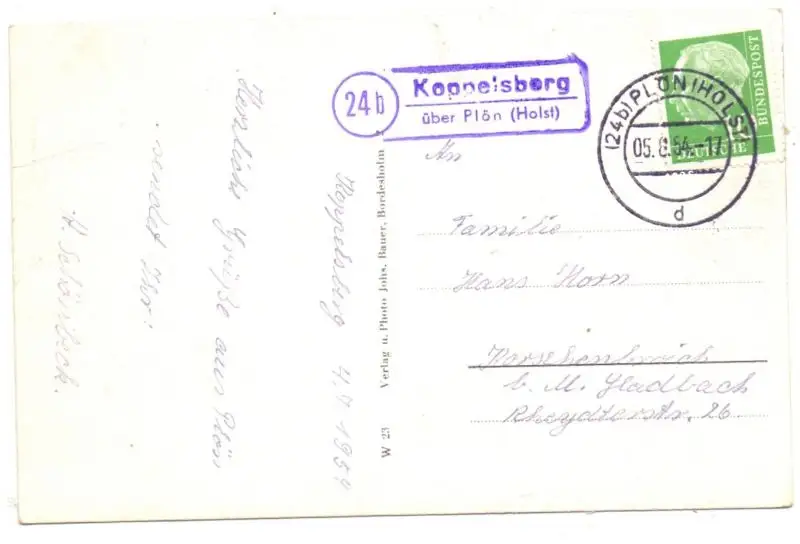 24b
Koppelsberg
über Plön (Holst)
(24b) PLÖN (HOLST)
05.8.54.-17
d
DEUTSCHE
BUNDESPOST
An
Familie
Hans Horn
Korschenbroich
b. M. Gladbach
Rheydterstr. 26
Koppelsberg 4.7.1954
Herzliche Grüße aus Plön
sendet Ihr:
H. Schönbeck.
Verlag u. Photo Johs. Bauer, Bordesholm
W 23